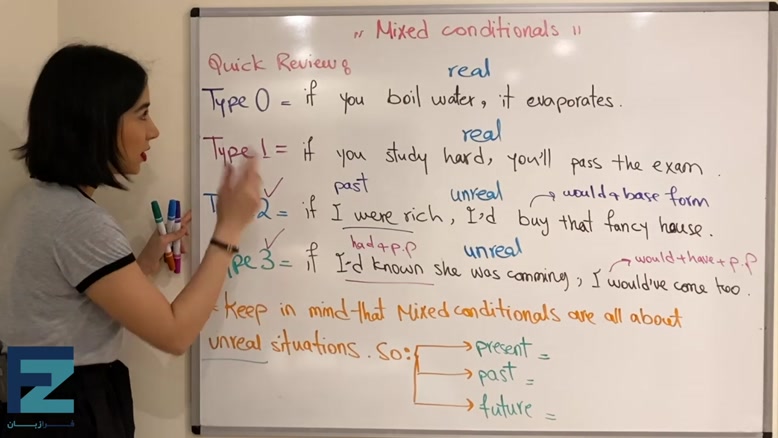 " Mixed conditionals "
Quick Review:
real
Type 0 = if you boil water, it evaporates.
real
Type 1 = if you study hard, you'll pass the exam.
past unreal would + base form
2 = if I were rich, I'd buy that fancy house.
had + p.p unreal would + have + p.p
Type 3 = if I'd known she was comming, I would've come too.
Keep in mind that Mixed conditionals are all about
unreal situations. So:
present =
past =
future =
FZ
فرازبان